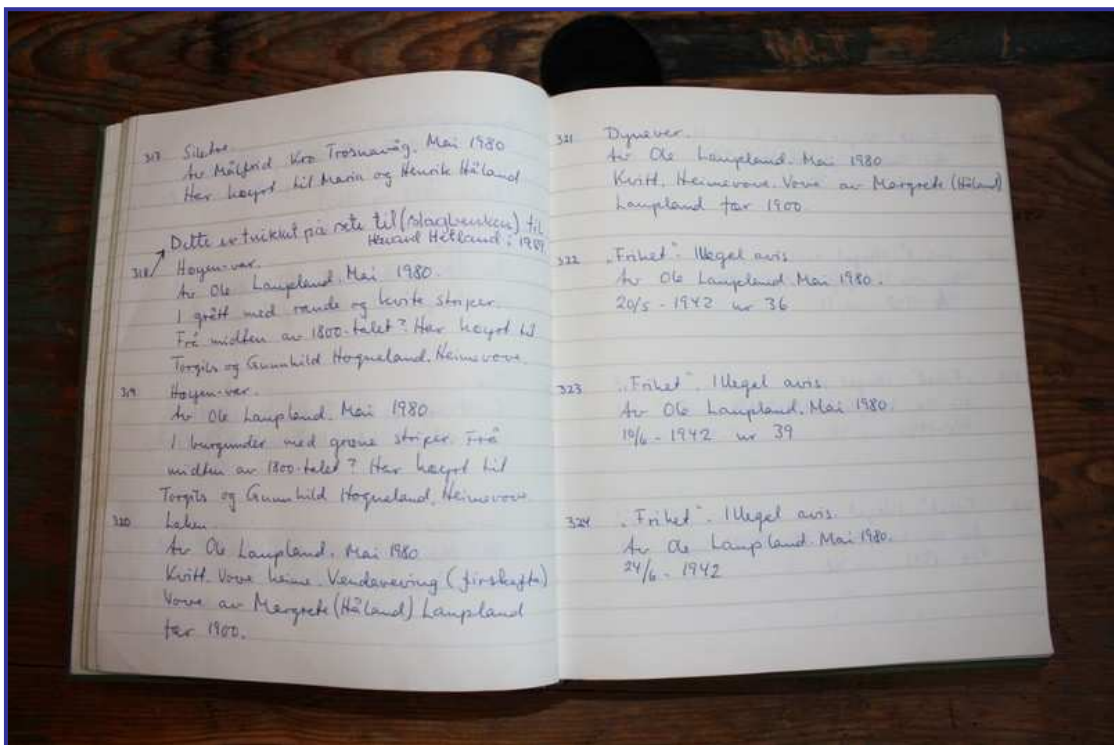 317 Siletre.
Av Målfrid Kro Trosnavåg. Mai 1980
Har høyrt til Maria og Henrik Håland
Dette er trekket på sete til (slagbenken) til
Håvard Hetland i 1989.
318 Hogen-var.
Av Ole Laupland. Mai 1980.
I grått med raude og kvite striper.
Frå midten av 1800-talet? Har høyrt til
Torgils og Gunnhild Hogneland. Heimevove.
319 Hogen-var.
Av Ole Laupland. Mai 1980
I burgunder med grøne striper. Frå
midten av 1800-talet? Har høyrt til
Torgils og Gunnhild Hogneland. Heimevove
320 Laken.
Av Ole Laupland. Mai 1980
Kvitt. Vove heime. Vendaveving (firskafta)
Vove av Margrete (Håland) Laupland
før 1900.
321 Dynevar.
Av Ole Laupland. Mai 1980
Kvitt. Heimevove. Vove av Margrete (Håland)
Laupland før 1900.
322 „Frihet". Illegal avis
Av Ole Laupland. Mai 1980.
20/5 - 1942 nr 36
323 „Frihet". Illegal avis.
Av Ole Laupland. Mai 1980.
10/6 - 1942 nr 39
324 „Frihet". Illegal avis.
Av Ole Laupland. Mai 1980.
24/6 - 1942